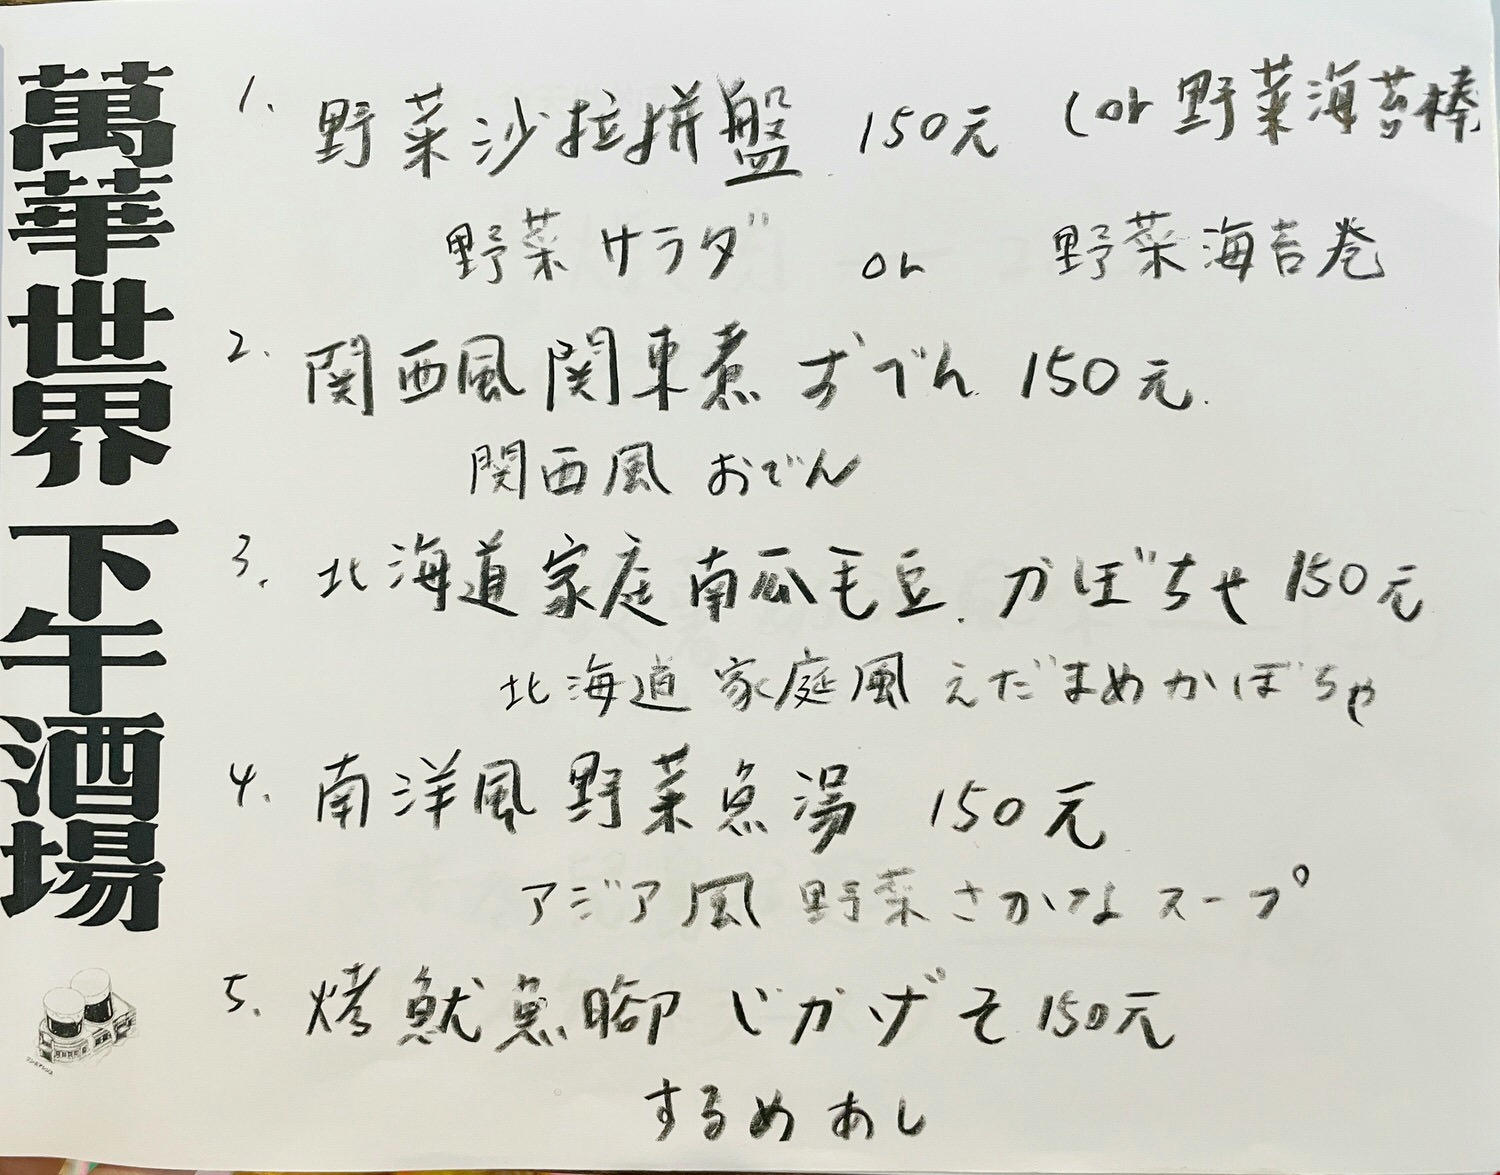 萬華世界 下午酒場
1. 野菜沙拉拼盤 150元 (or 野菜海苔棒
野菜サラダ or 野菜海苔巻
2. 関西風関東煮 おでん 150元.
関西風 おでん
3. 北海道家庭南瓜毛豆. かぼちゃ 150元
北海道 家庭風 えだまめかぼちゃ
4. 南洋風野菜魚湯 150元
アジア風 野菜さかなスープ
5. 烤魷魚腳 じかげそ 150元
するめあし